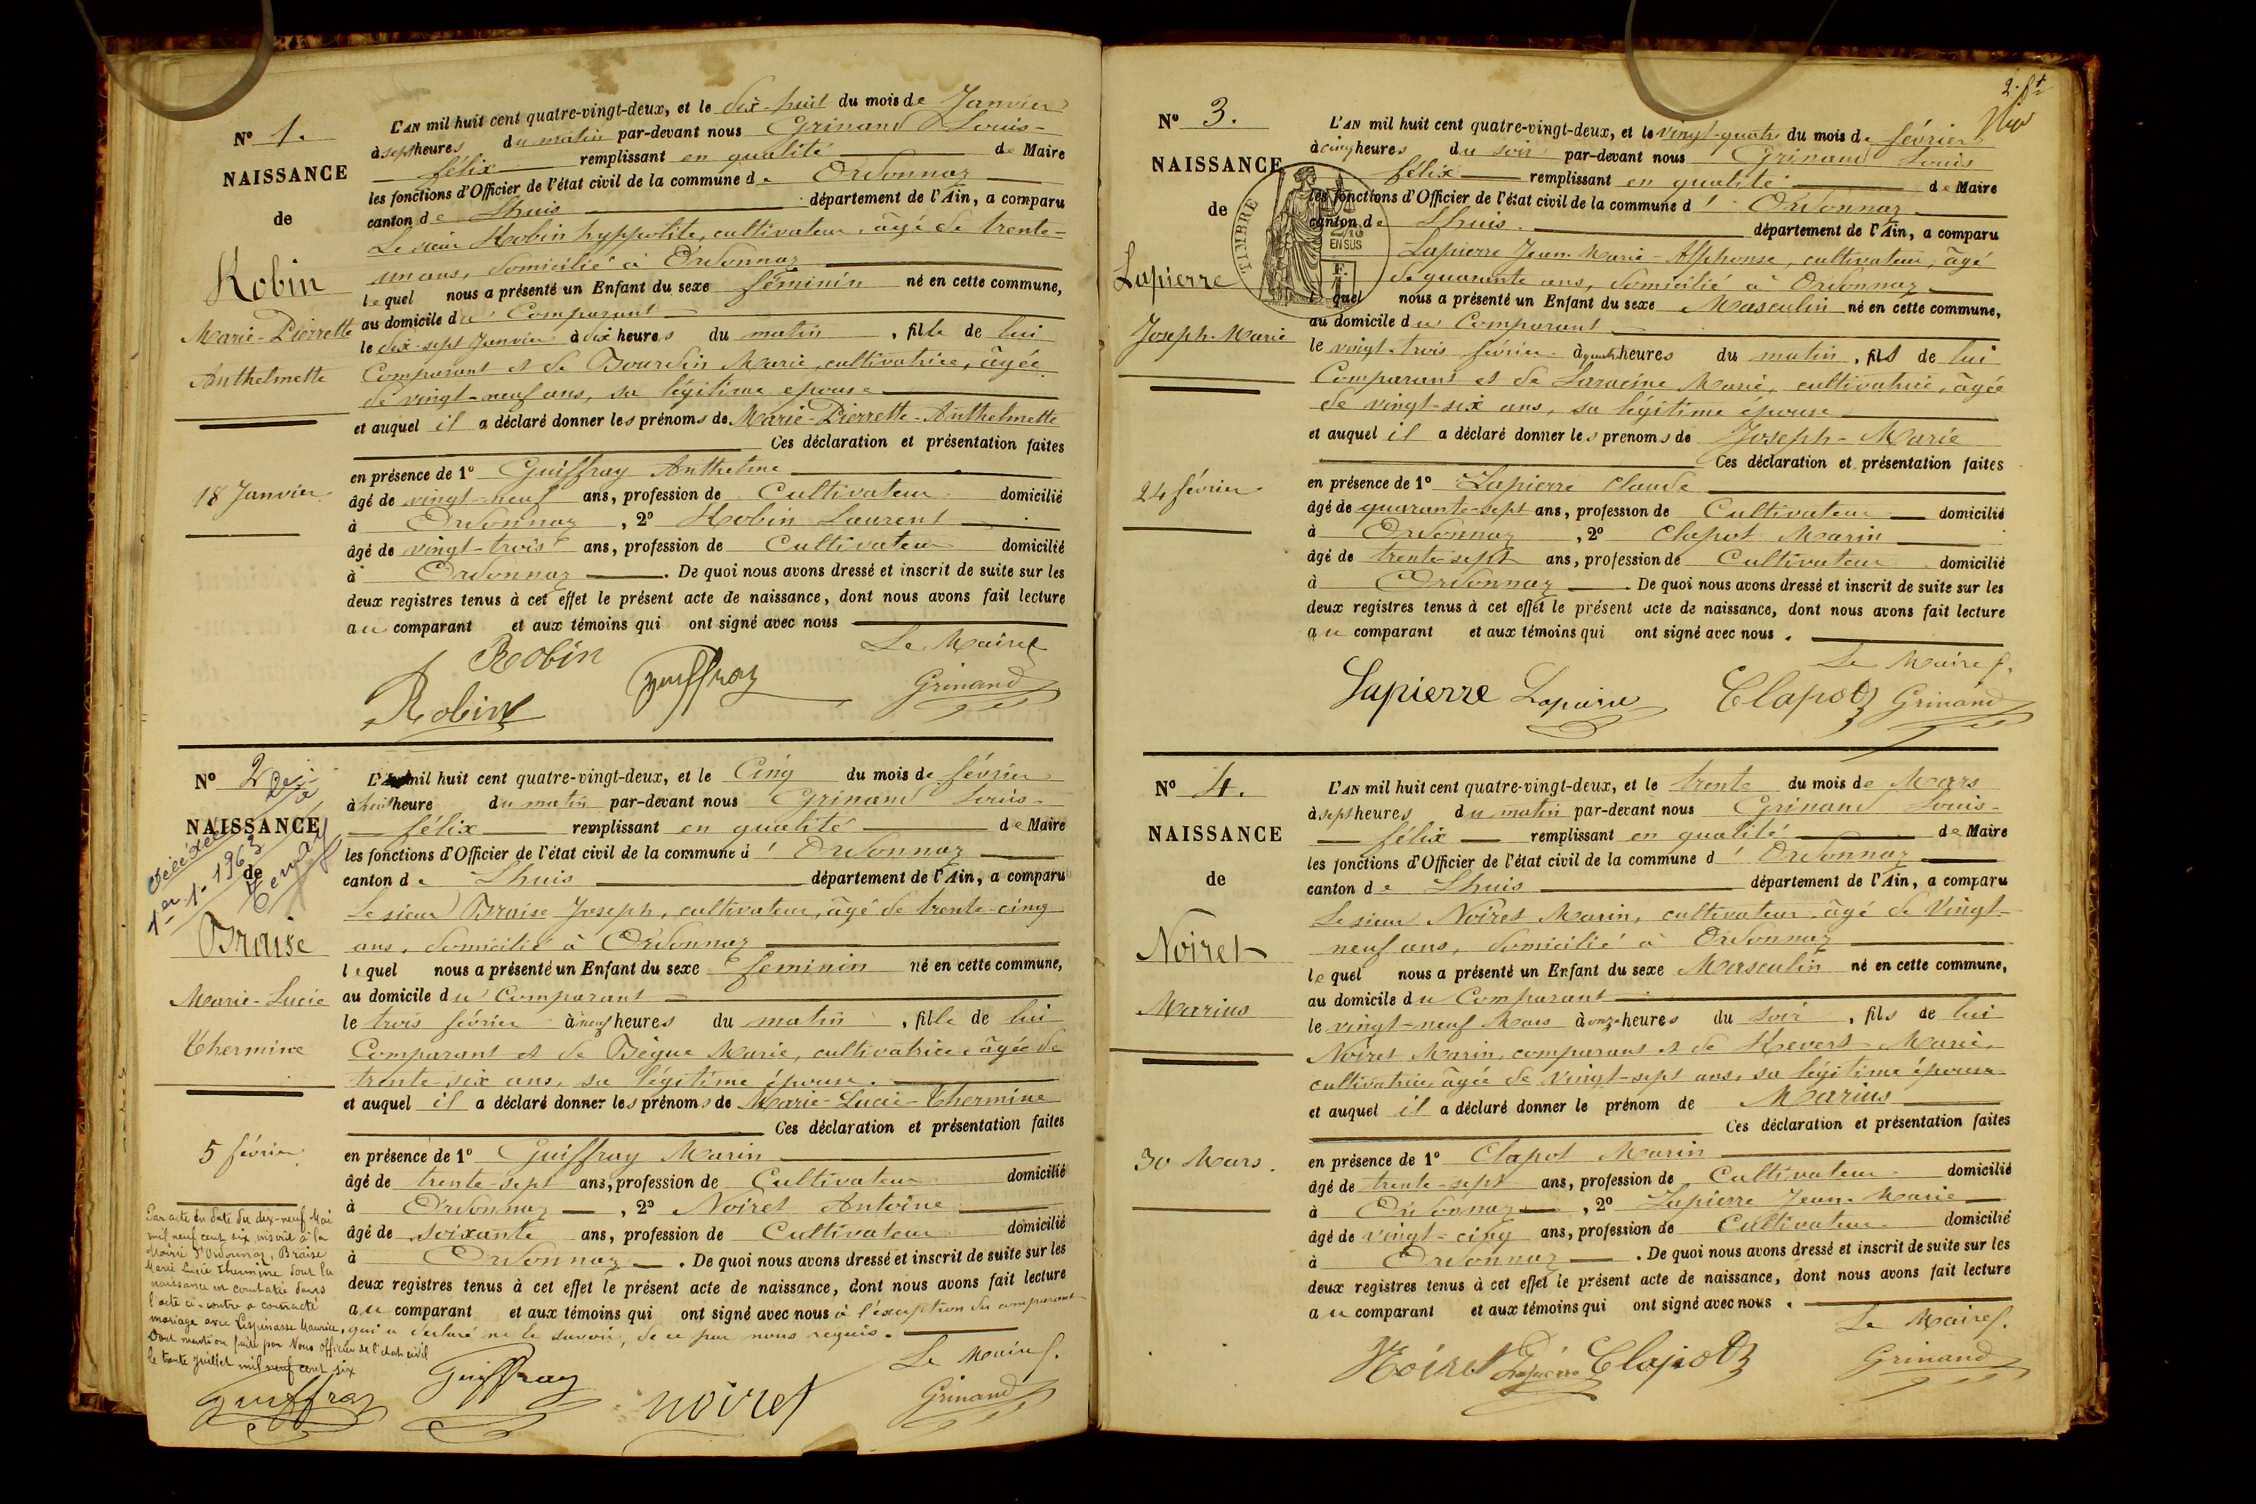 N° 1.
NAISSANCE
de
Robin
Marie-Pierrette
Anthelmette
18 Janvier
L'AN mil huit cent quatre-vingt-deux, et le dix-huit du mois de Janvier
à sept heures du matin par-devant nous Grinand Louis-
félix remplissant en qualité de Maire
les fonctions d'Officier de l'état civil de la commune d' Ordonnaz
canton de Lhuis département de l'Ain, a comparu
Le sieur Robin hyppolite, cultivateur, âgé de trente-
un ans, domicilié à Ordonnaz
lequel nous a présenté un Enfant du sexe féminin né en cette commune,
au domicile du Comparant
le dix-sept Janvier à dix heures du matin, fille de lui
Comparant et de Bourdin Marie, cultivatrice, âgée
de vingt-neuf ans, sa légitime épouse
et auquel il a déclaré donner les prénoms de Marie-Pierrette-Anthelmette
Ces déclaration et présentation faites
en présence de 1° Guiffray Anthelme
âgé de vingt-neuf ans, profession de Cultivateur domicilié
à Ordonnaz, 2° Robin Laurent
âgé de vingt-trois ans, profession de Cultivateur domicilié
à Ordonnaz. De quoi nous avons dressé et inscrit de suite sur les
deux registres tenus à cet effet le présent acte de naissance, dont nous avons fait lecture
au comparant et aux témoins qui ont signé avec nous
Le Maire
Robin
Robin
guiffray
Grinand
N° 2
NAISSANCE
de
décédée
1er 1. 1963
Braise
Marie-Lucie
Thermine
5 février
Par acte en date du dix-neuf Mai
mil neuf cent six inscrit à la
Mairie d'Ordonnaz, Braise
Marie Lucie Thermine dont la
naissance est constatée dans
l'acte ci-contre a contracté
mariage avec Lespinasse Maurice,
Dont mention faite par Nous Officier de l'état civil
le trente Juillet mil neuf cent six
guiffray
L'AN mil huit cent quatre-vingt-deux, et le Cinq du mois de février
à huit heure du matin par-devant nous Grinand Louis-
félix remplissant en qualité de Maire
les fonctions d'Officier de l'état civil de la commune d' Ordonnaz
canton de Lhuis département de l'Ain, a comparu
Le sieur Braise Joseph, cultivateur, âgé de trente-cinq
ans, domicilié à Ordonnaz
lequel nous a présenté un Enfant du sexe feminin né en cette commune,
au domicile du Comparant
le trois février à neuf heures du matin, fille de lui
Comparant et de Bègue Marie, cultivatrice, âgée de
trente-six ans, sa légitime épouse.
et auquel il a déclaré donner les prénoms de Marie-Lucie-Thermine
Ces déclaration et présentation faites
en présence de 1° Guiffray Marin
âgé de trente-sept ans, profession de Cultivateur domicilié
à Ordonnaz, 2° Noiret Antoine
âgé de soixante ans, profession de Cultivateur domicilié
à Ordonnaz. De quoi nous avons dressé et inscrit de suite sur les
deux registres tenus à cet effet le présent acte de naissance, dont nous avons fait lecture
au comparant et aux témoins qui ont signé avec nous à l'exception du comparant
qui a déclaré ne le savoir, de ce par nous requis.
Le Maire
Guiffray
noiret
Grinand
N° 3.
NAISSANCE
de
Lapierre
Joseph-Marie
24 février
TIMBRE
EN SUS
L'AN mil huit cent quatre-vingt-deux, et le vingt-quatre du mois de février
à cinq heures du soir par-devant nous Grinand Louis
félix remplissant en qualité de Maire
les fonctions d'Officier de l'état civil de la commune d' Ordonnaz
canton de Lhuis département de l'Ain, a comparu
Lapierre Jean-Marie-Alphonse, cultivateur, âgé
de quarante ans, domicilié à Ordonnaz
quel nous a présenté un Enfant du sexe Masculin né en cette commune,
au domicile du Comparant
le vingt-trois février à quatre heures du matin, fils de lui
Comparant et de Laracine Marie, cultivatrice, âgée
de vingt-six ans, sa légitime épouse
et auquel il a déclaré donner les prenoms de Joseph-Marie
Ces déclaration et présentation faites
en présence de 1° Lapierre Claude
âgé de quarante-sept ans, profession de Cultivateur domicilié
à Ordonnaz, 2° Clapot Marin
âgé de trente-sept ans, profession de Cultivateur domicilié
à Ordonnaz. De quoi nous avons dressé et inscrit de suite sur les
deux registres tenus à cet effet le présent acte de naissance, dont nous avons fait lecture
au comparant et aux témoins qui ont signé avec nous.
Le Maire
Lapierre Lapierre Clapot Grinand
N° 4.
NAISSANCE
de
Noiret
Marius
30 Mars.
L'AN mil huit cent quatre-vingt-deux, et le trente du mois de Mars
à sept heures du matin par-devant nous Grinand Louis-
félix remplissant en qualité de Maire
les fonctions d'Officier de l'état civil de la commune d' Ordonnaz
canton de Lhuis département de l'Ain, a comparu
Le sieur Noiret Marin, cultivateur, âgé de Vingt-
neuf ans, domicilié à Ordonnaz
lequel nous a présenté un Enfant du sexe Masculin né en cette commune,
au domicile du Comparant
le vingt-neuf Mars à onze heures du soir, fils de lui
Noiret Marin, comparant et de Revert Marie,
cultivatrice, âgée de Vingt-sept ans, sa légitime épouse
et auquel il a déclaré donner le prénom de Marius
Ces déclaration et présentation faites
en présence de 1° Clapot Marin
âgé de trente-sept ans, profession de Cultivateur domicilié
à Ordonnaz, 2° Lapierre Jean-Marie
âgé de vingt-cinq ans, profession de Cultivateur domicilié
à Ordonnaz. De quoi nous avons dressé et inscrit de suite sur les
deux registres tenus à cet effet le présent acte de naissance, dont nous avons fait lecture
au comparant et aux témoins qui ont signé avec nous.
Le Maire
Noiret Lapierre Clapot Grinand